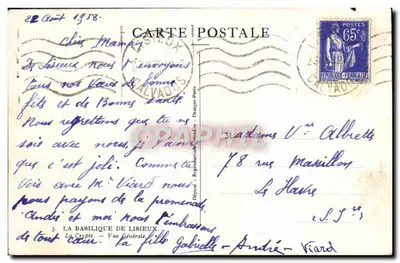 22 Août 1938.
CARTE POSTALE
Chère Maman,
De Lisieux nous t'envoyons
tous nos vœux de bonne
fête et de Bonne santé.
Nous regrettons que tu ne
sois avec nous
que c'est joli. Comme tu
vois avec Mr Viard nous
nous payons de la promenade
André et moi nous t'embrassons
de tout cœur. ta fille Gabrielle - André - Viard
1. LA BASILIQUE DE LISIEUX.
La Crypte. - Vue Générale.
LISIEUX
CALVADOS
POSTES
65c
CALVADOS
Madame Vve Albrette
78 rue Massillon
Le Havre
(S. Ire)